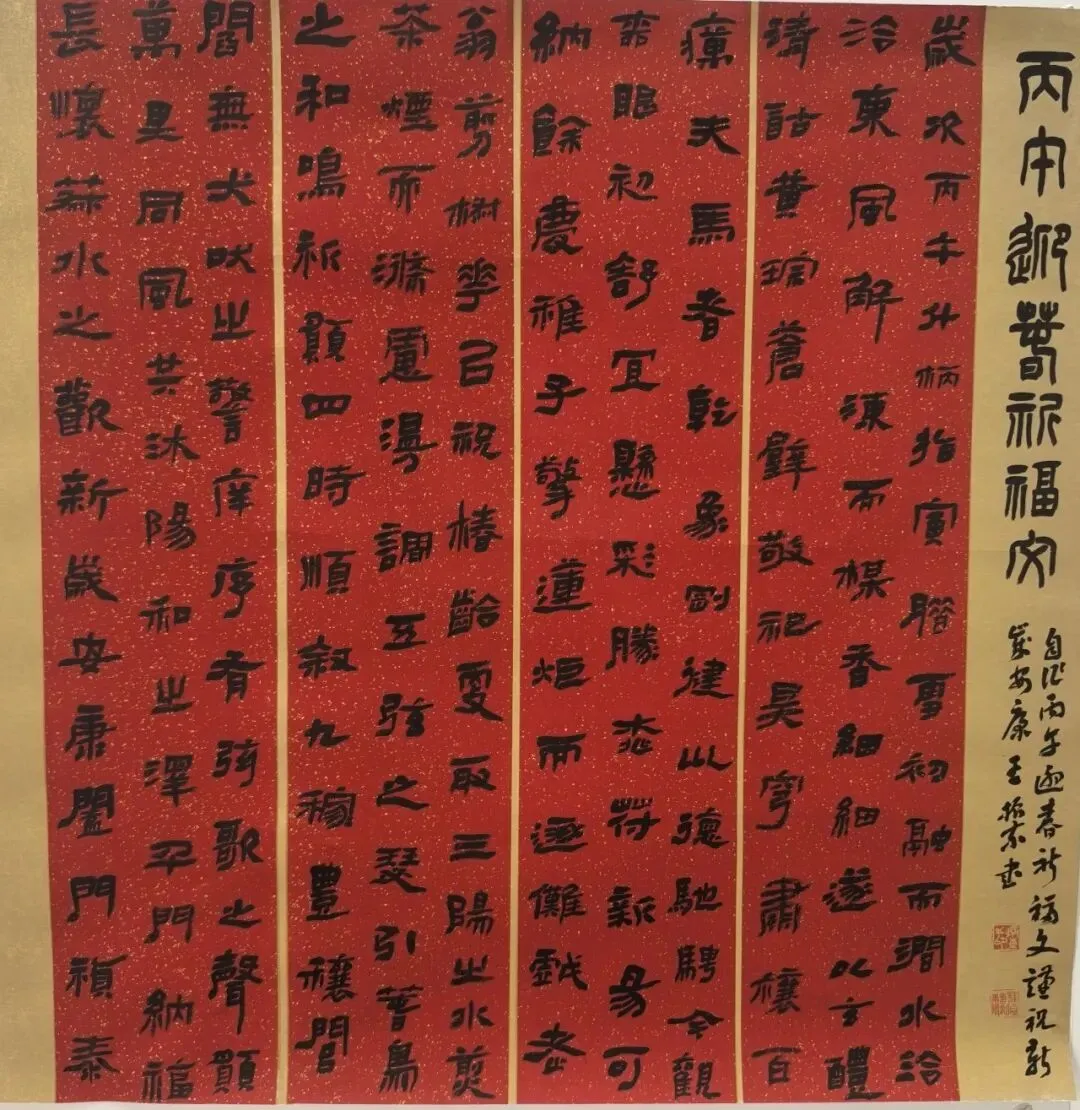 丙午迎春祈福文
自作丙午迎春祈福文謹祝新
歲安康王振東書
歲次丙午斗柄指寅臘雪初融而澗水泠
泠東風解凍而楳香細細遂以方醴
黄琮蒼璧敬祀昊穹肅禳百
瘼夫馬者乾象剛健以德馳騁今觀
眼初舒宜懸彩勝桃符新易可
納餘慶稚子擎蓮炬而逐儺戲老
翁剪樹花以祝椿齡更取三陽之水煎
茶煙而滌慮漫調五弦之瑟引春鳥
之和鳴祈願四時順敘九稼豐穰閭
閻無犬吠之警庠序有弦歌之聲願
萬里同風共沐陽和之澤千門納福
長懷菽水之歡新歲安康闔門禎泰